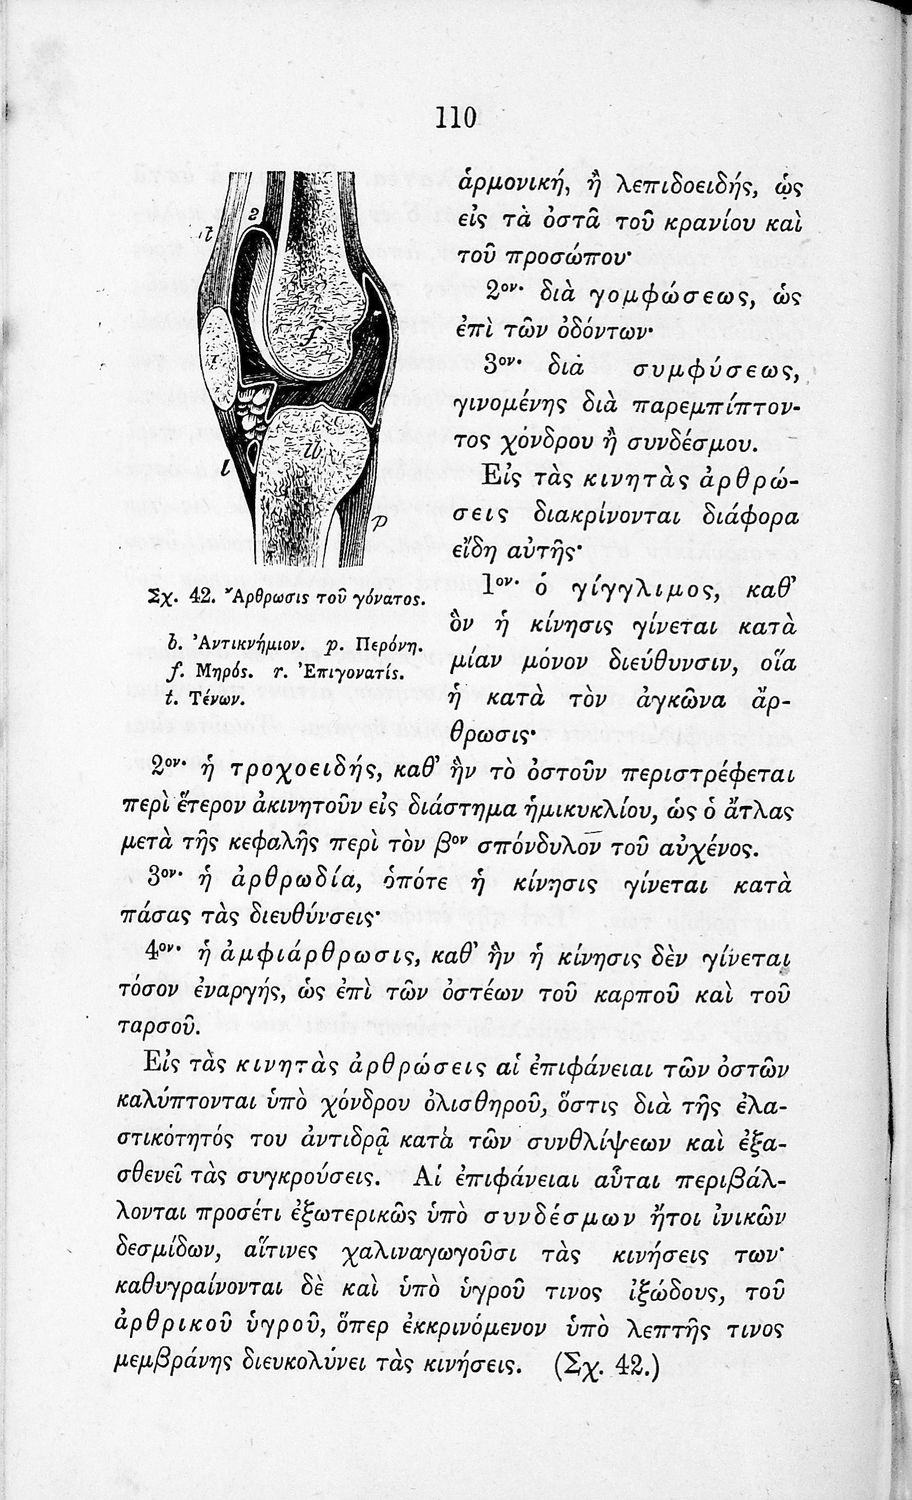 110
ἁρμονική, ἢ λεπιδοειδής, ὡς
εἰς τὰ ὀστᾶ τοῦ κρανίου καὶ
τοῦ προσώπου·
2ον· διὰ γομφώσεως, ὡς
ἐπὶ τῶν ὀδόντων·
3ον· διὰ συμφύσεως,
γινομένης διὰ παρεμπίπτον-
τος χόνδρου ἢ συνδέσμου.
Εἰς τὰς κινητὰς ἀρθρώ-
σεις διακρίνονται διάφορα
εἴδη αὐτῆς·
1ον· ὁ γίγγλιμος, καθ’
ὃν ἡ κίνησις γίνεται κατὰ
μίαν μόνον διεύθυνσιν, οἵα
ἡ κατὰ τὸν ἀγκῶνα ἄρ-
θρωσις·
t
2
f
r
b
l
p
Σχ. 42. Ἄρθρωσις τοῦ γόνατος.
b. Ἀντικνήμιον. p. Περόνη.
f. Μηρός. r. Ἐπιγονατίς.
t. Τένων.
2ον· ἡ τροχοειδής, καθ’ ἣν τὸ ὀστοῦν περιστρέφεται
περὶ ἕτερον ἀκινητοῦν εἰς διάστημα ἡμικυκλίου, ὡς ὁ ἄτλας
μετὰ τῆς κεφαλῆς περὶ τὸν βον σπόνδυλον τοῦ αὐχένος.
3ον· ἡ ἀρθρωδία, ὁπότε ἡ κίνησις γίνεται κατὰ
πάσας τὰς διευθύνσεις·
4ον· ἡ ἀμφιάρθρωσις, καθ’ ἣν ἡ κίνησις δὲν γίνεται
τόσον ἐναργής, ὡς ἐπὶ τῶν ὀστέων τοῦ καρποῦ καὶ τοῦ
ταρσοῦ.
Εἰς τὰς κινητὰς ἀρθρώσεις αἱ ἐπιφάνειαι τῶν ὀστῶν
καλύπτονται ὑπὸ χόνδρου ὀλισθηροῦ, ὅστις διὰ τῆς ἐλα-
στικότητός του ἀντιδρᾷ κατὰ τῶν συνθλίψεων καὶ ἐξα-
σθενεῖ τὰς συγκρούσεις. Αἱ ἐπιφάνειαι αὗται περιβάλ-
λονται προσέτι ἐξωτερικῶς ὑπὸ συνδέσμων ἤτοι ἰνικῶν
δεσμίδων, αἵτινες χαλιναγωγοῦσι τὰς κινήσεις των·
καθυγραίνονται δὲ καὶ ὑπὸ ὑγροῦ τινος ἰξώδους, τοῦ
ἀρθρικοῦ ὑγροῦ, ὅπερ ἐκκρινόμενον ὑπὸ λεπτῆς τινος
μεμβράνης διευκολύνει τὰς κινήσεις. (Σχ. 42.)